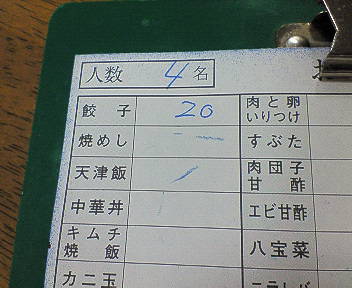 人数 4名
餃子 20 肉と卵いりつけ
焼めし 一 すぶた
天津飯 肉団子甘酢
中華丼 エビ甘酢
キムチ焼飯 八宝菜
カニ玉